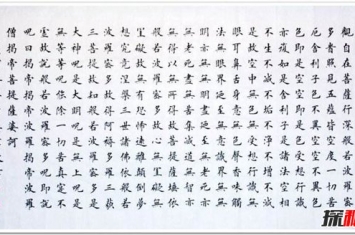 觀自在菩薩行深般若波羅蜜
多時照見五蘊皆空度一切苦
厄舍利子色不異空空不異色
色即是空空即是色受想行識
亦復如是舍利子是諸法空相
不生不滅不垢不淨不增不減
是故空中無色無受想行識無
眼耳鼻舌身意無色聲香味觸
法無眼界乃至無意識界無無
明亦無無明盡乃至無老死亦
無老死盡無苦集滅道無智亦
無得以無所得故菩提薩埵依
般若波羅蜜多故心無罣礙無
罣礙故無有恐怖遠離顛倒夢
想究竟涅槃三世諸佛依般若
波羅蜜多故得阿耨多羅三藐
三菩提故知般若波羅蜜多是
大神咒是大明咒是無上咒是
無等等咒能除一切苦真實不
虛故說般若波羅蜜多咒即說
咒曰揭帝揭帝般羅揭帝波羅
僧揭帝菩提薩婆訶
探秘